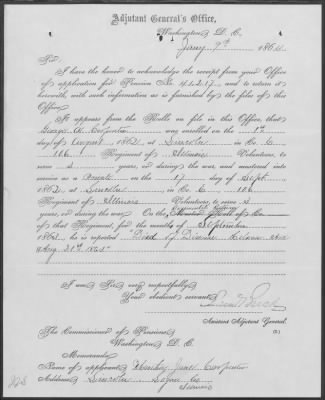 Adjutant General's Office,
Washington D. C.
Jany 9th 1864.
Sir:
I have the honor to acknowledge the receipt from your Office
of application for Pension No. and to return it
herewith, with such information as is furnished by the files of this
Office.
It appears from the Rolls on file in this Office, that
George A. Carpenter was enrolled on the 1st
day of August 1862, at Lincoln in Co. E
106 Regiment of Illinois Volunteers, to
serve 3 years, or during the war, and mustered into
service as a Private on the 17 day of Sept
1862, at Lincoln in Co. E 106
Regiment of Illinois Volunteers, to serve 3
years, or during the war. On the Muster Roll of Co
of that Regiment, for the months of September
1863, he is reported Died of Disease Helena Ark
Aug 31st 1863
I am, Sir, very respectfully,
Your obedient servant,
Assistant Adjutant General.
The Commissioner of Pensions,
Washington D. C.
Memoranda:
Name of applicant, Jane Carpenter
Address, Lincoln Logan Co
Illinois